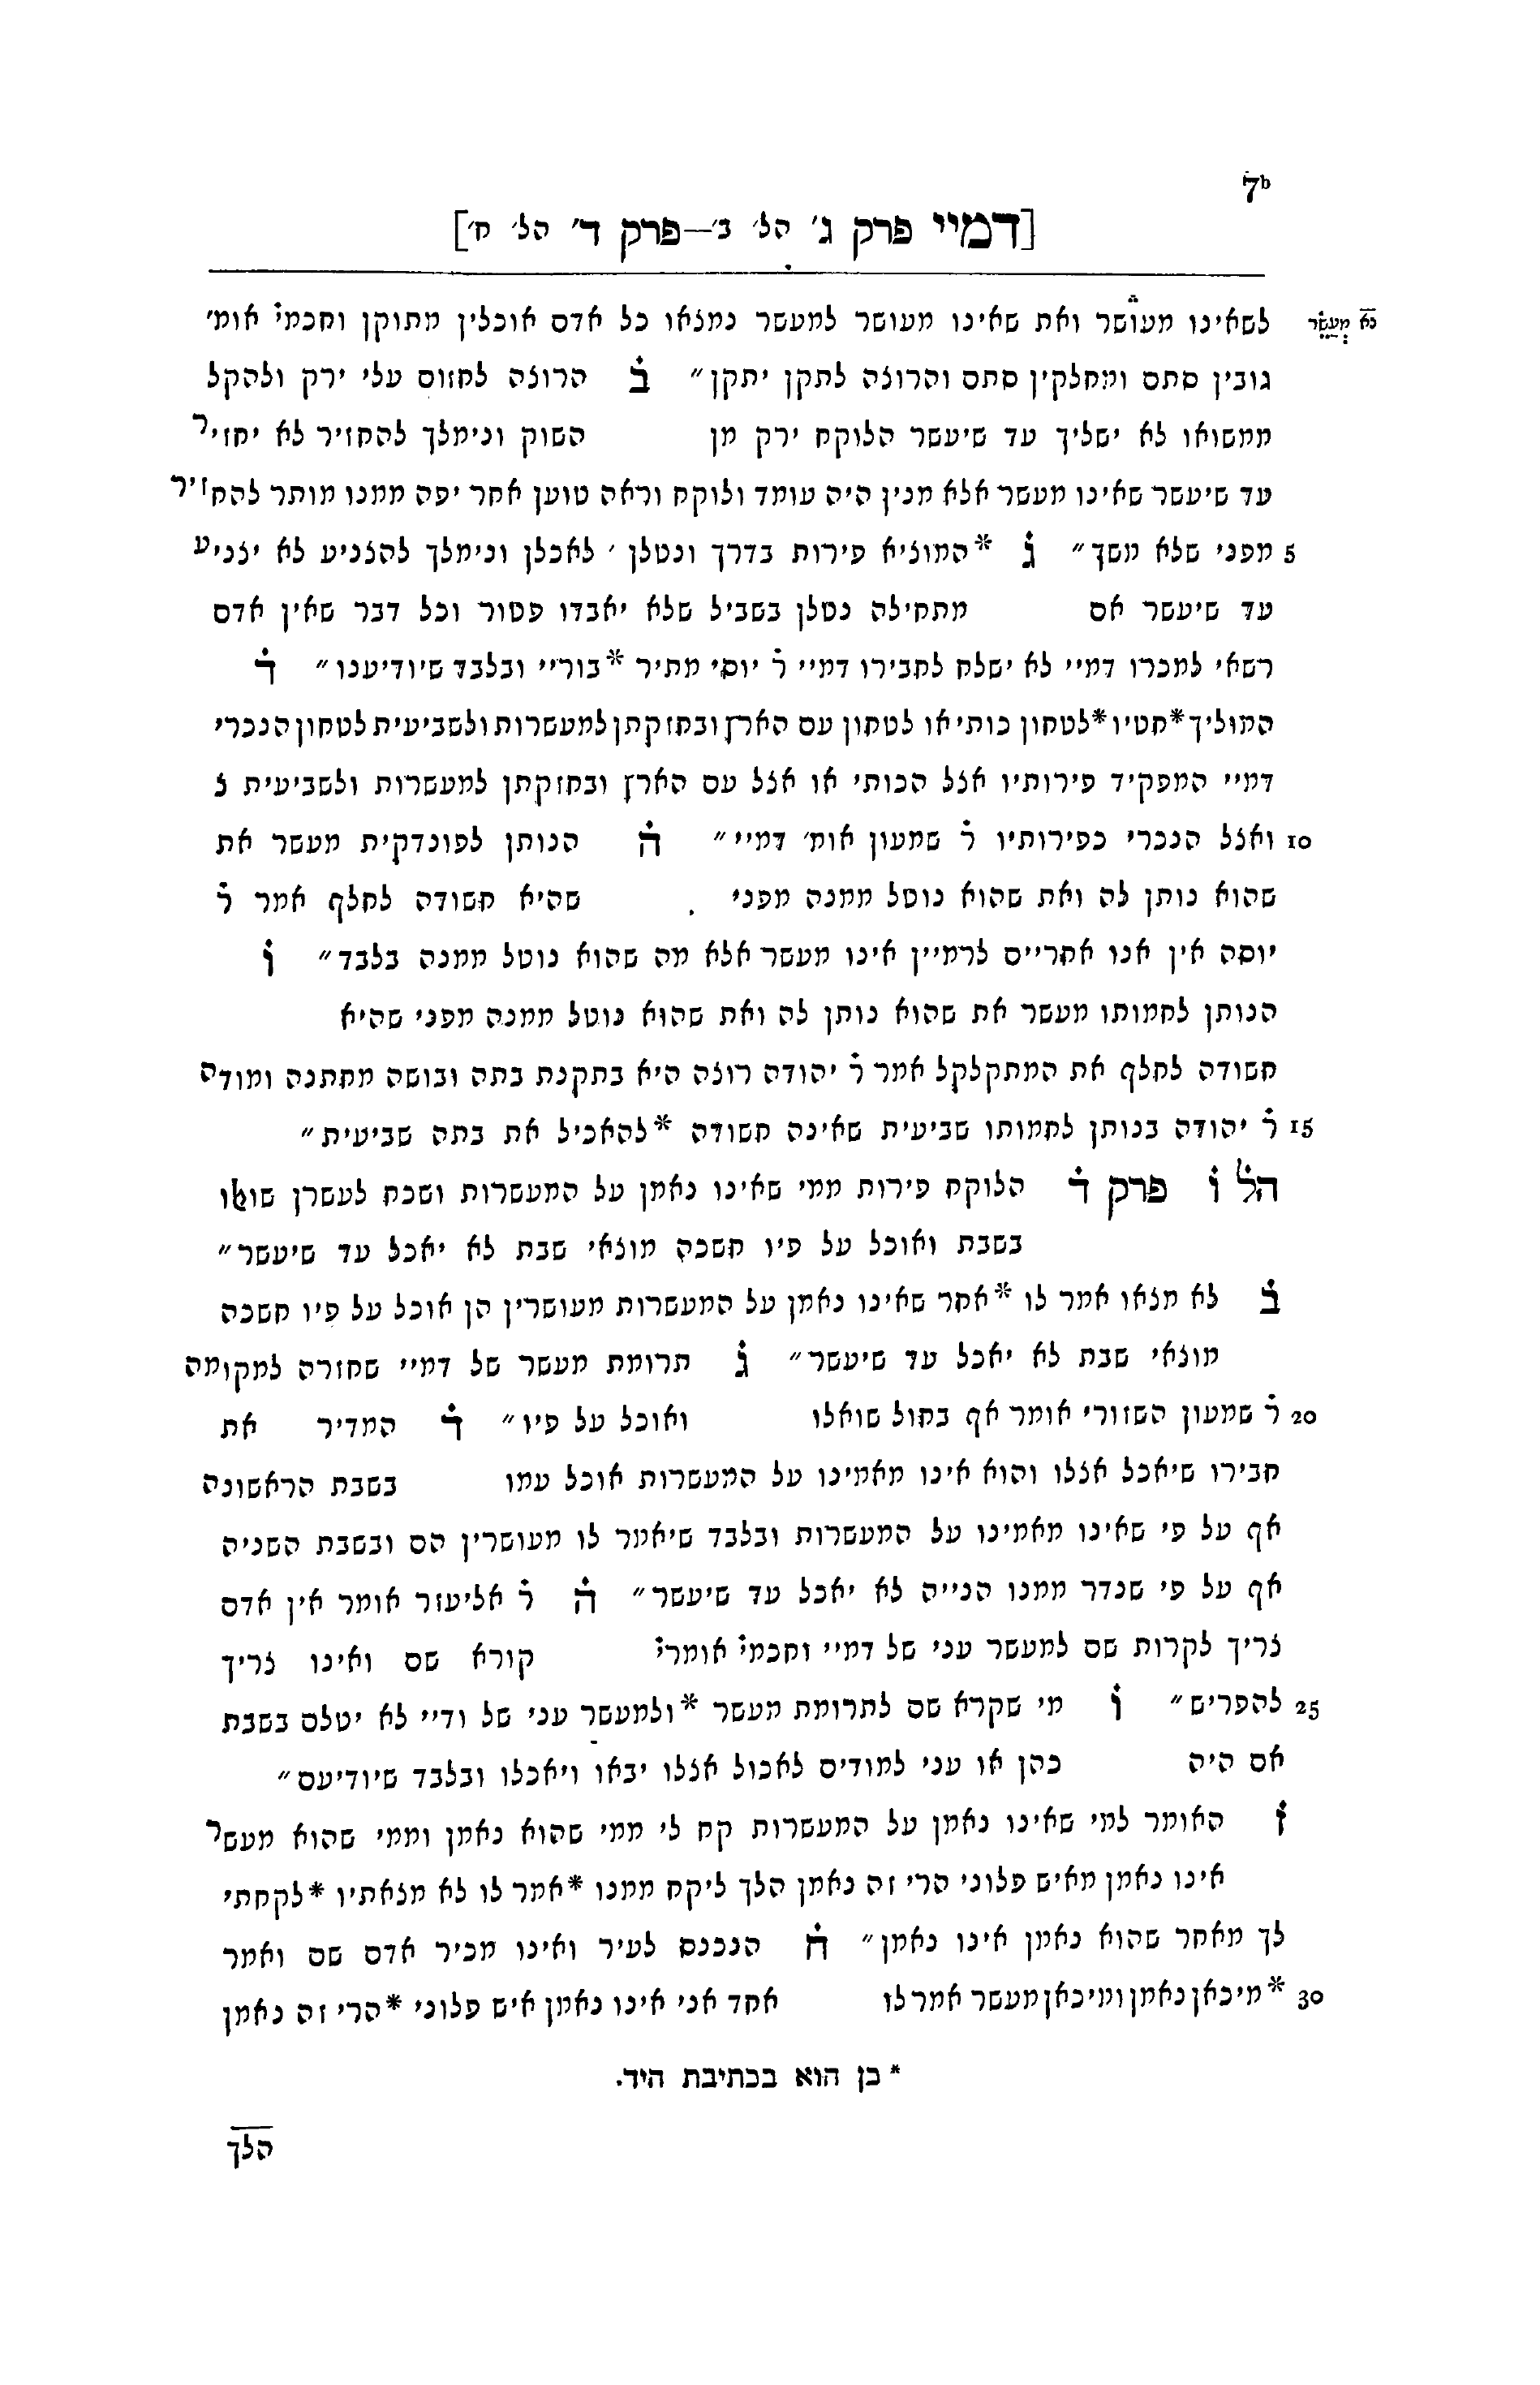 7b
[דמיי פרק ג׳ הל׳ ב׳—פרק ד׳ הל׳ ח׳]
לשאינו מעושר ואת שאינו מעושר למעשר נמצאו כל אדם אוכלין מתוקן וחכמי֗ אומ׳
נא מעשר
גובין סתם ומחלקין סתם והרוצה לתקן יתקן״ ב֗ הרוצה לחזום עלי ירק ולהקל
ממשואו לא ישליך עד שיעשר הלוקח ירק מן השוק ונימלך להחזיר לא יחזיר
עד שיעשר שאינו מעשר אלא מנין היה עומד ולוקח וראה טוען אחר יפה ממנו מותר להחזיר
5 מפני שלא משך״ ג֗ *המוציא פירות בדרך ונטלן ׳ לאכלן ונימלך להצניע לא יצניע
עד שיעשר אם מתחילה נטלן בשביל שלא יאבדו פטור וכל דבר שאין אדם
רשאי למכרו דמיי לא ישלח לחבירו דמיי ר֗ יוסי מתיר *בוריי ובלבד שיודיענו״ ד֗
המוליך*חטיו*לטחון כותי או לטחון עם הארץ ובחזקתן למעשרות ולשביעית לטחון הנכרי
דמיי המפקיד פירותיו אצל הכותי או אצל עם הארץ ובחזקתן למעשרות ולשביעית צ
10 ואצל הנכרי כפירותיו ר֗ שמעון אומ׳ דמיי״ ה֗ הנותן לפונדקית מעשר את
שהוא נותן לה ואת שהוא נוטל ממנה מפני שהיא חשודה לחלף אמר ר֗
יוסה אין אנו אחריים לרמיין אינו מעשר אלא מה שהוא נוטל ממנה בלבד״ ו֗
הנותן לחמותו מעשר את שהוא נותן לה ואת שהוא נוטל ממנה מפני שהיא
חשודה לחלף את המתקלקל אמר ר֗ יהודה רוצה היא בתקנת בתה ובושה מחתנה ומודה
15 ר֗ יהודה בנותן לחמותו שביעית שאינה חשודה *להאכיל את בתה שביעית״
הל֗ ו֗ פרק ד֗ הלוקח פירות ממי שאינו נאמן על המעשרות ושכח לעשרן שואלו
בשבת ואוכל על פיו חשכה מוצאי שבת לא יאכל עד שיעשר״
ב֗ לא מצאו אמר לו *אחר שאינו נאמן על המעשרות מעושרין הן אוכל על פיו חשכה
מוצאי שבת לא יאכל עד שיעשר״ ג֗ תרומת מעשר של דמיי שחזרה למקומה
20 ר֗ שמעון השזורי אומר אף בחול שואלו ואוכל על פיו״ ד֗ המדיר את
חבירו שיאכל אצלו והוא אינו מאמינו על המעשרות אוכל עמו בשבת הראשונה
אף על פי שאינו מאמינו על המעשרות ובלבד שיאמר לו מעושרין הם ובשבת השניה
אף על פי שנדר ממנו הנייה לא יאכל עד שיעשר״ ה֗ ר֗ אליעזר אומר אין אדם
צריך לקרות שם למעשר עני של דמיי וחכמי֗ אומרי֗ קורא שם ואינו צריך
25 להפריש״ ו֗ מי שקרא שם לתרומת מעשר *ולמעשר עני של ודיי לא יטלם בשבת
אם היה כהן או עני למודים לאכול אצלו יבאו ויאכלו ובלבד שיודיעם״
ז֗ האומר למי שאינו נאמן על המעשרות קח לי ממי שהוא נאמן וממי שהוא מעשר
אינו נאמן מאיש פלוני הרי זה נאמן הלך ליקח ממנו *אמר לו לא מצאתיו *לקחתי
לך מאחר שהוא נאמן אינו נאמן״ ח֗ הנכנס לעיר ואינו מכיר אדם שם ואמר
30 *מיכאן נאמן ומיכאן מעשר אמר לו אחד אני אינו נאמן איש פלוני *הרי זה נאמן
* כן הוא בכתיבת היד.
הלך